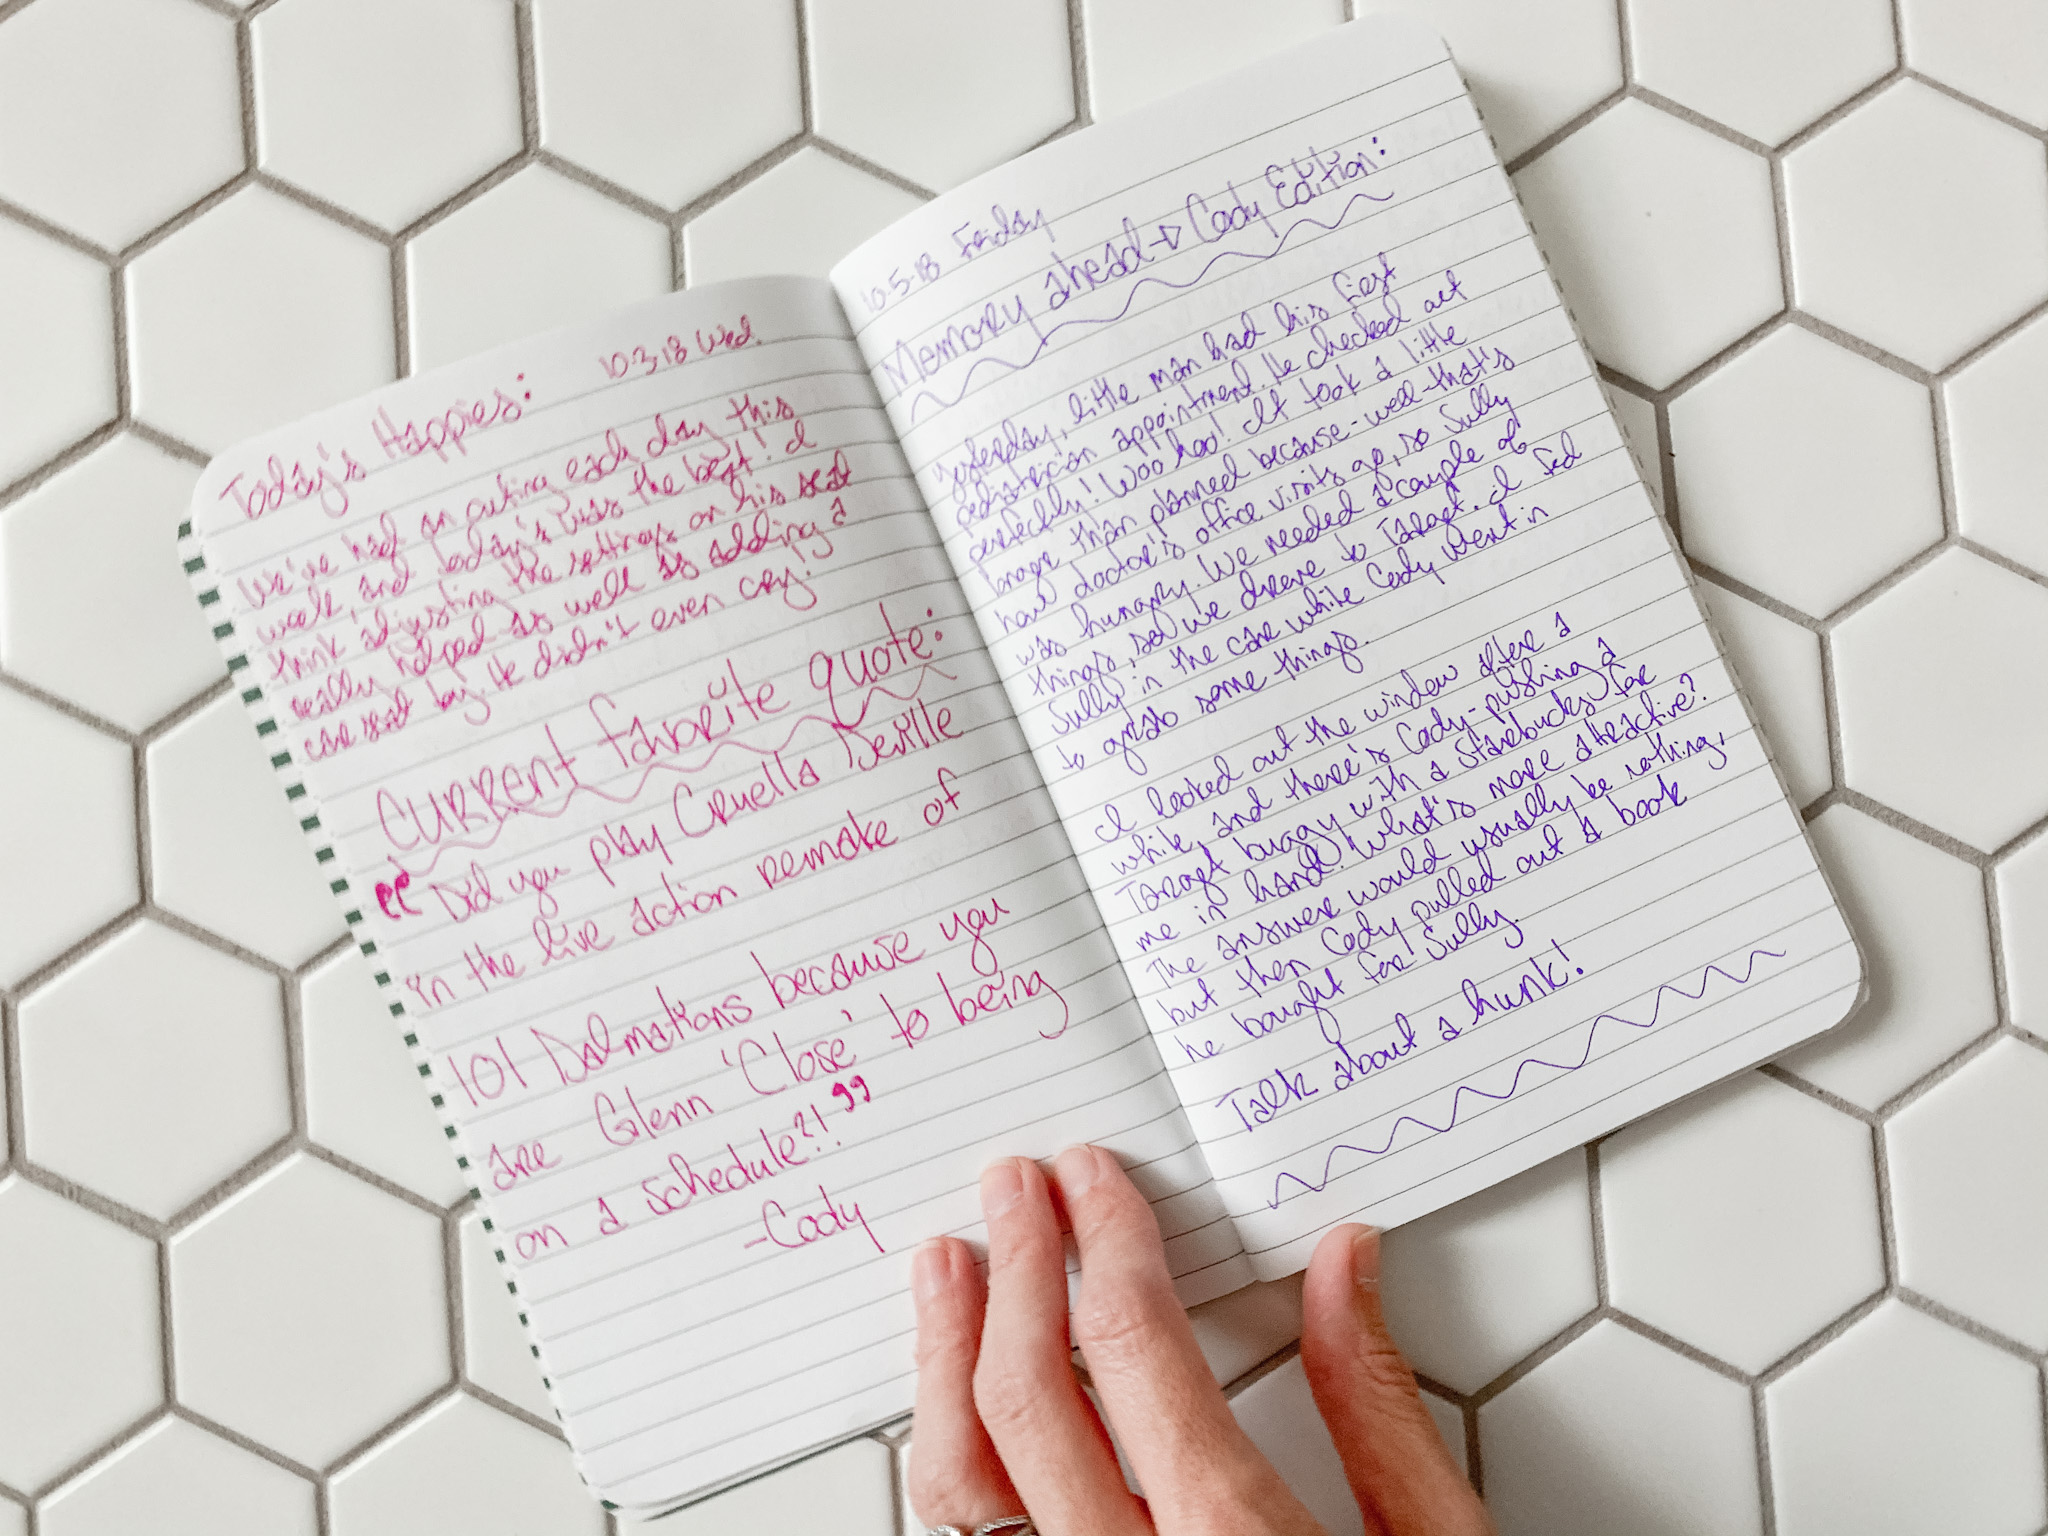 Today's Happies: 10.3.18 Wed.
We've had an outing each day this
week, and today's was the best! I
think adjusting the settings on his seat
really helped as well as adding a
car seat toy. He didn't even cry!
Current favorite quote:
"Did you play Cruella Deville
in the live action remake of
101 Dalmations because you
are Glenn 'Close' to being
on a schedule?!"
-Cody
10-5-18 Friday
Memory ahead→ Cody Edition:
Yesterday, little man had his first
pediatrician appointment. He checked out
perfectly! Woo hoo! It took a little
longer than planned because - well - that's
how doctor's office visits go, so Sully
was hungry. We needed a couple of
things, so we drove to Target. I fed
Sully in the car while Cody went in
to grab some things.
I looked out the window after a
while, and there's Cody - pushing a
Target buggy with a Starbucks for
me in hand! What's more attractive?
The answer would usually be nothing,
but then Cody pulled out a book
he bought for Sully.
Talk about a hunk!